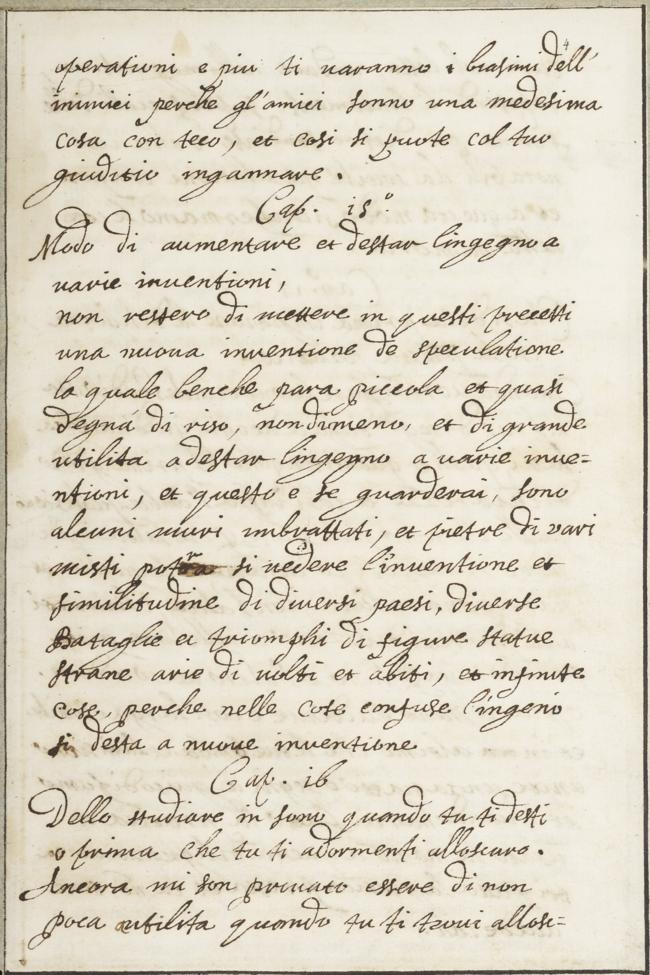 4
operationi e piu ti uaranno i biasimi dell'
inimici perche gl'amici sonno una medesima
cosa con teco, et cosi si puote col tuo
giuditio ingannare.
Cap. 15.º
Modo di aumentare et destar l'ingegno a
varie inventioni,
non restero di mettere in questi precetti
una nuoua inventione de speculatione
la quale benche para piccola et quasi
degna di riso, nondimeno, et di grande
utilita a destar l'ingegno a varie inue=
ntioni, et questo e se guarderai, sono
alcuni muri imbrattati, et pietre di vari
misti si uedere l'inventione et
similitudine di diversi paesi, diverse
Bataglie et triomphi di figure statue
strane arie di uolti et abiti, et infinite
cose, perche nelle cose confuse l'ingenio
si desta a nuoue inventione
Cap. 16
Dello studiare in sono quando tu ti desti
o prima che tu ti adormenti alloscuro.
Ancora mi son prouato essere di non
poca utilita quando tu ti troui allosc=